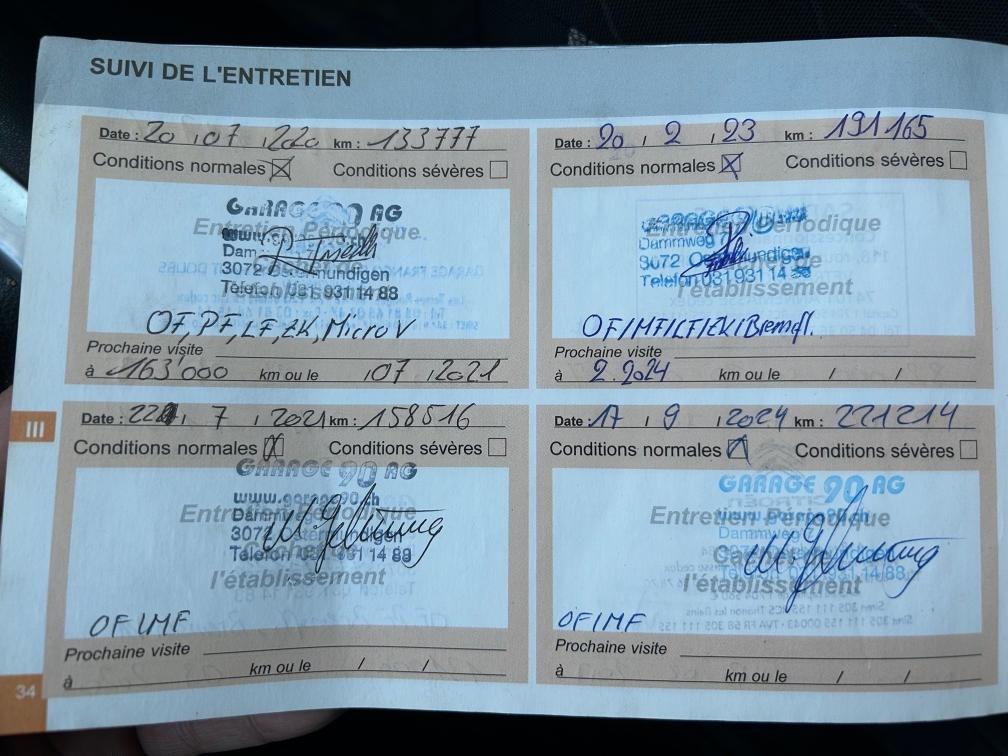 SUIVI DE L'ENTRETIEN
Date : 20 / 07 / 220 km : 133777
Conditions normales Conditions sévères
GARAGE 90 AG
Entretien Périodique
3072 Ostermundigen
Telefon 031 931 14 88
OF, PF, LF, ZK, Micro V
Prochaine visite
à 163'000 km ou le 07 / 2021
Date : 20 / 2 / 23 km : 191165
Conditions normales Conditions sévères
Entretien Périodique
Dammweg
3072 Ostermundigen
Telefon 031 931 14
l'établissement
OF/MF/LF/ZK/Bremsfl.
Prochaine visite
à 2.2024 km ou le / /
III
Date : 22 / 7 / 2021 km : 158516
Conditions normales Conditions sévères
GARAGE 90 AG
www.garage90.ch
Entretien Périodique
3072 Ostermundigen
Telefon 031 931 14 88
l'établissement
OF/MF
Prochaine visite
à km ou le / /
Date : 17 / 9 / 2024 km : 221214
Conditions normales Conditions sévères
GARAGE 90 AG
www.garage90.ch
Entretien Périodique
Dammweg
l'établissement
OF/MF
Prochaine visite
à km ou le / /
34